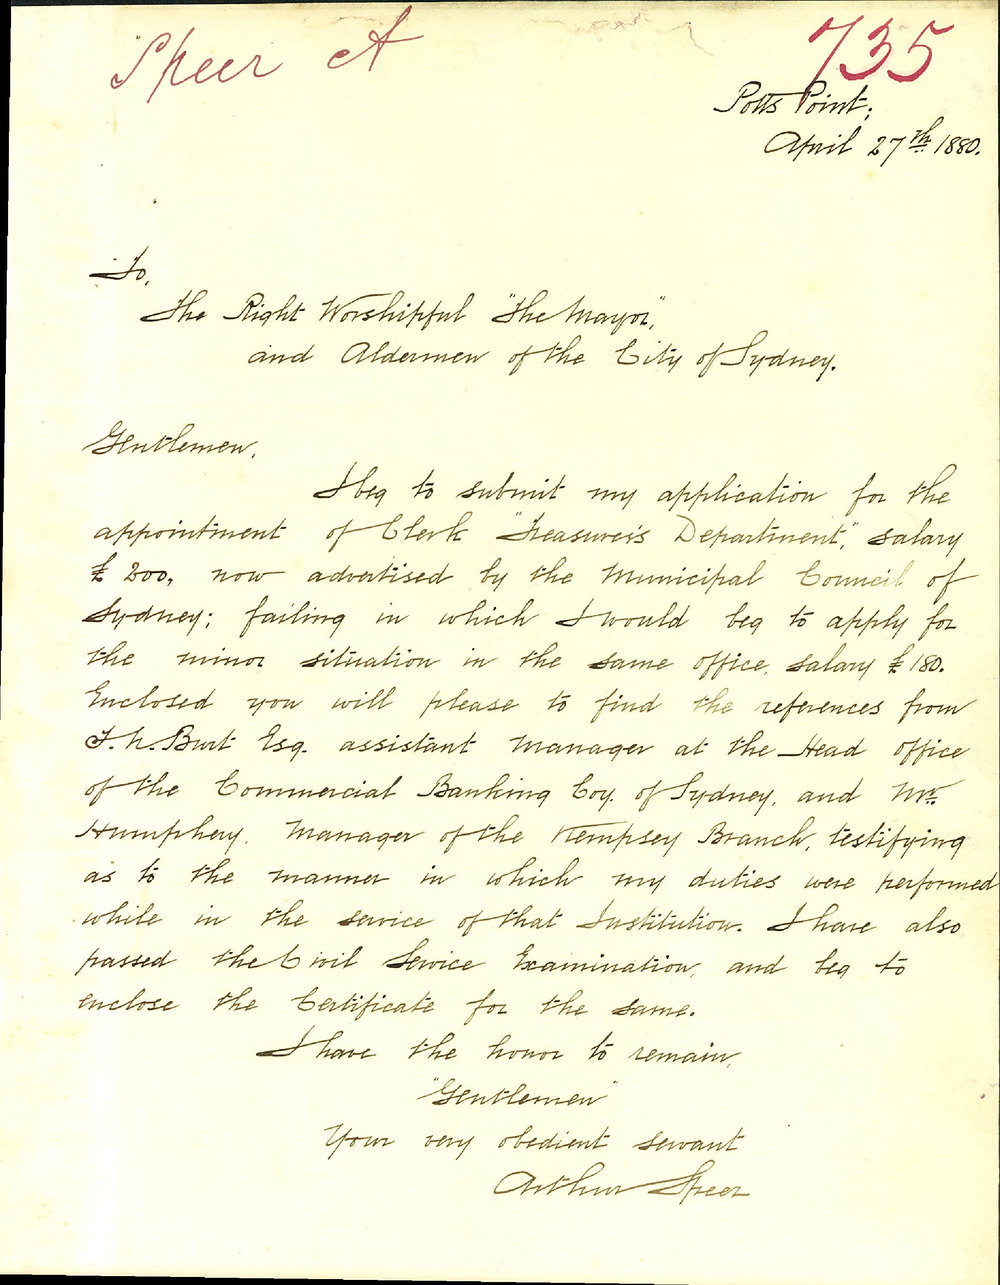 Speer A
735
Potts Point;
April 27th 1880.
To,
The Right Worshipful "The Mayor",
and Aldermen of the City of Sydney.
Gentlemen,
I beg to submit my application for the
appointment of Clerk "Treasurer's Department", salary
£200, now advertised by the Municipal Council of
Sydney; failing in which I would beg to apply for
the minor situation in the same office, salary £180.
Enclosed you will please to find the references from
T. h. Burt Esq. assistant Manager at the Head office
of the Commercial Banking Coy. of Sydney, and Mr.
Humphery, Manager of the Kempsey Branch, testifying
as to the manner in which my duties were performed
while in the service of that Institution. I have also
passed the Civil Service Examination, and beg to
enclose the Certificate for the same.
I have the honor to remain,
"Gentlemen"
Your very obedient servant
Arthur Speer